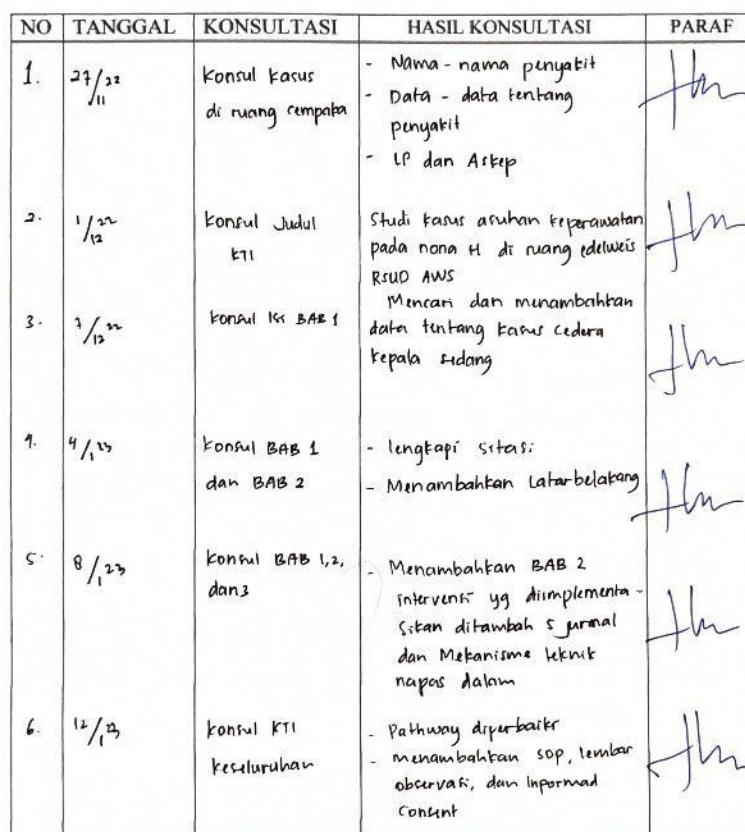 NO TANGGAL KONSULTASI HASIL KONSULTASI PARAF
1. 27/11 22 Konsul Kasus di ruang cempaka
- Nama - nama penyakit
- Data - data tentang
penyakit
- LP dan Askep
2. 1/12 22 Konsul Judul
KTI
Studi kasus asuhan keperawatan
pada nona H di ruang edelweis
RSUD AWS
3. 7/12 22 Konsul Isi BAB 1
Mencari dan menambahkan
data tentang kasus cedera
kepala sedang
4. 4/1 23 Konsul BAB 1
dan BAB 2
- lengkapi sitasi
- Menambahkan Latar belakang
5. 8/1 23 Konsul BAB 1,2,
dan 3
- Menambahkan BAB 2
intervensi yg diimplementa-
sikan ditambah 5 jurnal
dan Mekanisme teknik
napas dalam
6. 12/1 23 Konsul KTI
keseluruhan
- Pathway diperbaiki
- menambahkan sop, lembar
observasi, dan Inpormad
Consent